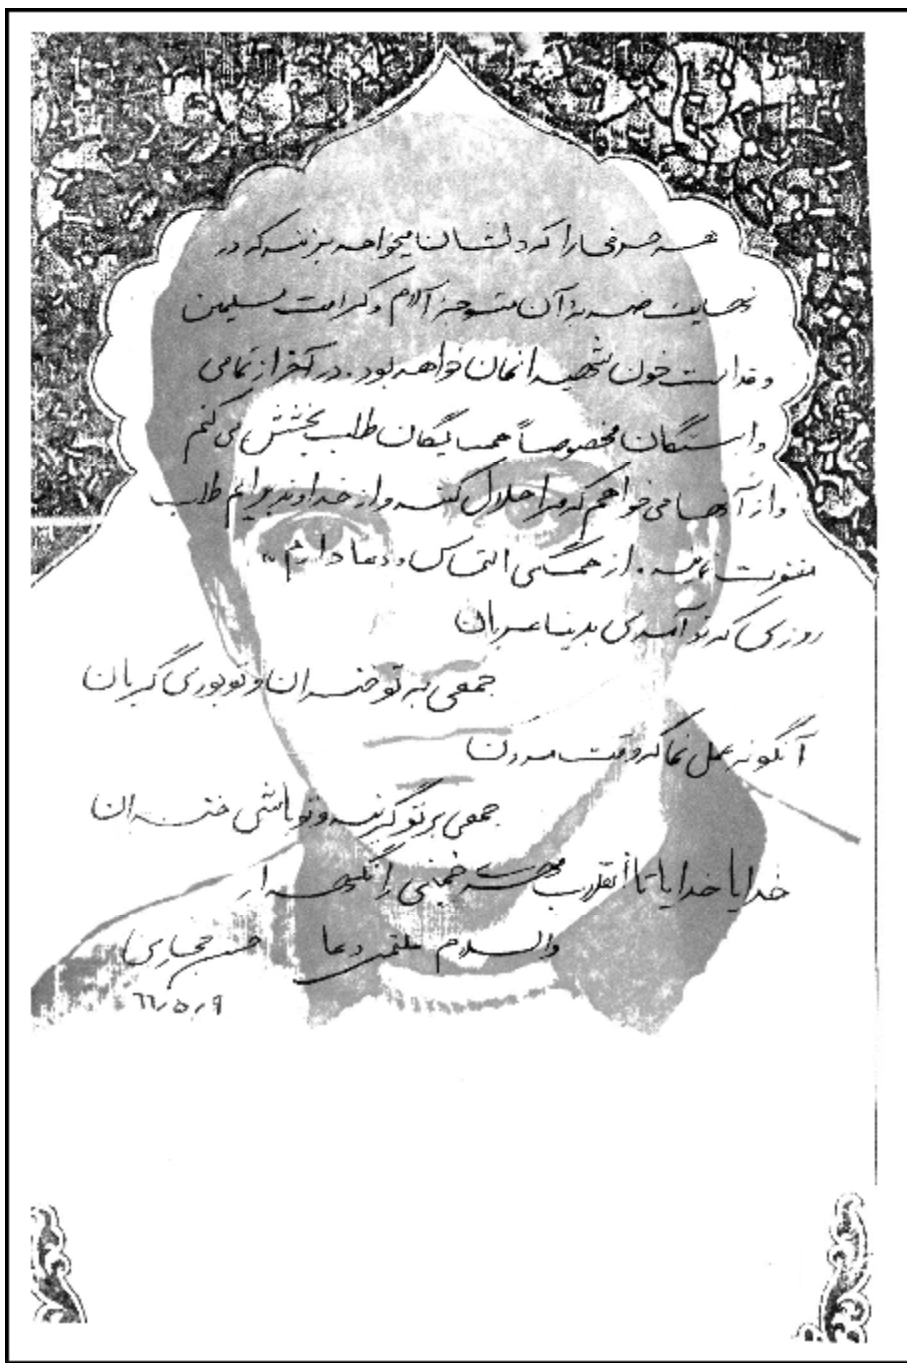 هر حرفی را که دلشان میخواهد بزنند که در
نهایت ضربه آن متوجه آرام و کرامت مسلمین
و قداست خون شهیدانمان خواهد بود. در آخر از تمامی
وابستگان مخصوصاً همسایگان طلب بخشش می کنم
و از آنها می خواهم که مرا حلال کنند و از خداوند برایم طلب
مغفرت نمایند. از همگی التماس دعا دارم »
روزی که تو آمدی بدنیا عریان
جمعی به تو خندان و تو بودی گریان
آنگونه عمل نما که وقت مردن
جمعی بر تو گریند و تو باشی خندان
خدایا خدایا تا انقلاب مهدی خمینی را نگهدار
والسلام ملتمس دعا حسن حجاری
۶۶٫۵٫۹